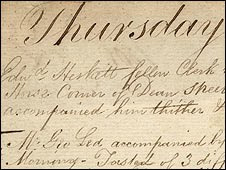 Thursday
Edwd. Heskett fellow Clerk
Morse Corner of Dean Street
accompanied him thither &
Mr. Geo Lod accompanied by
Morning - Tasted of 3 diff